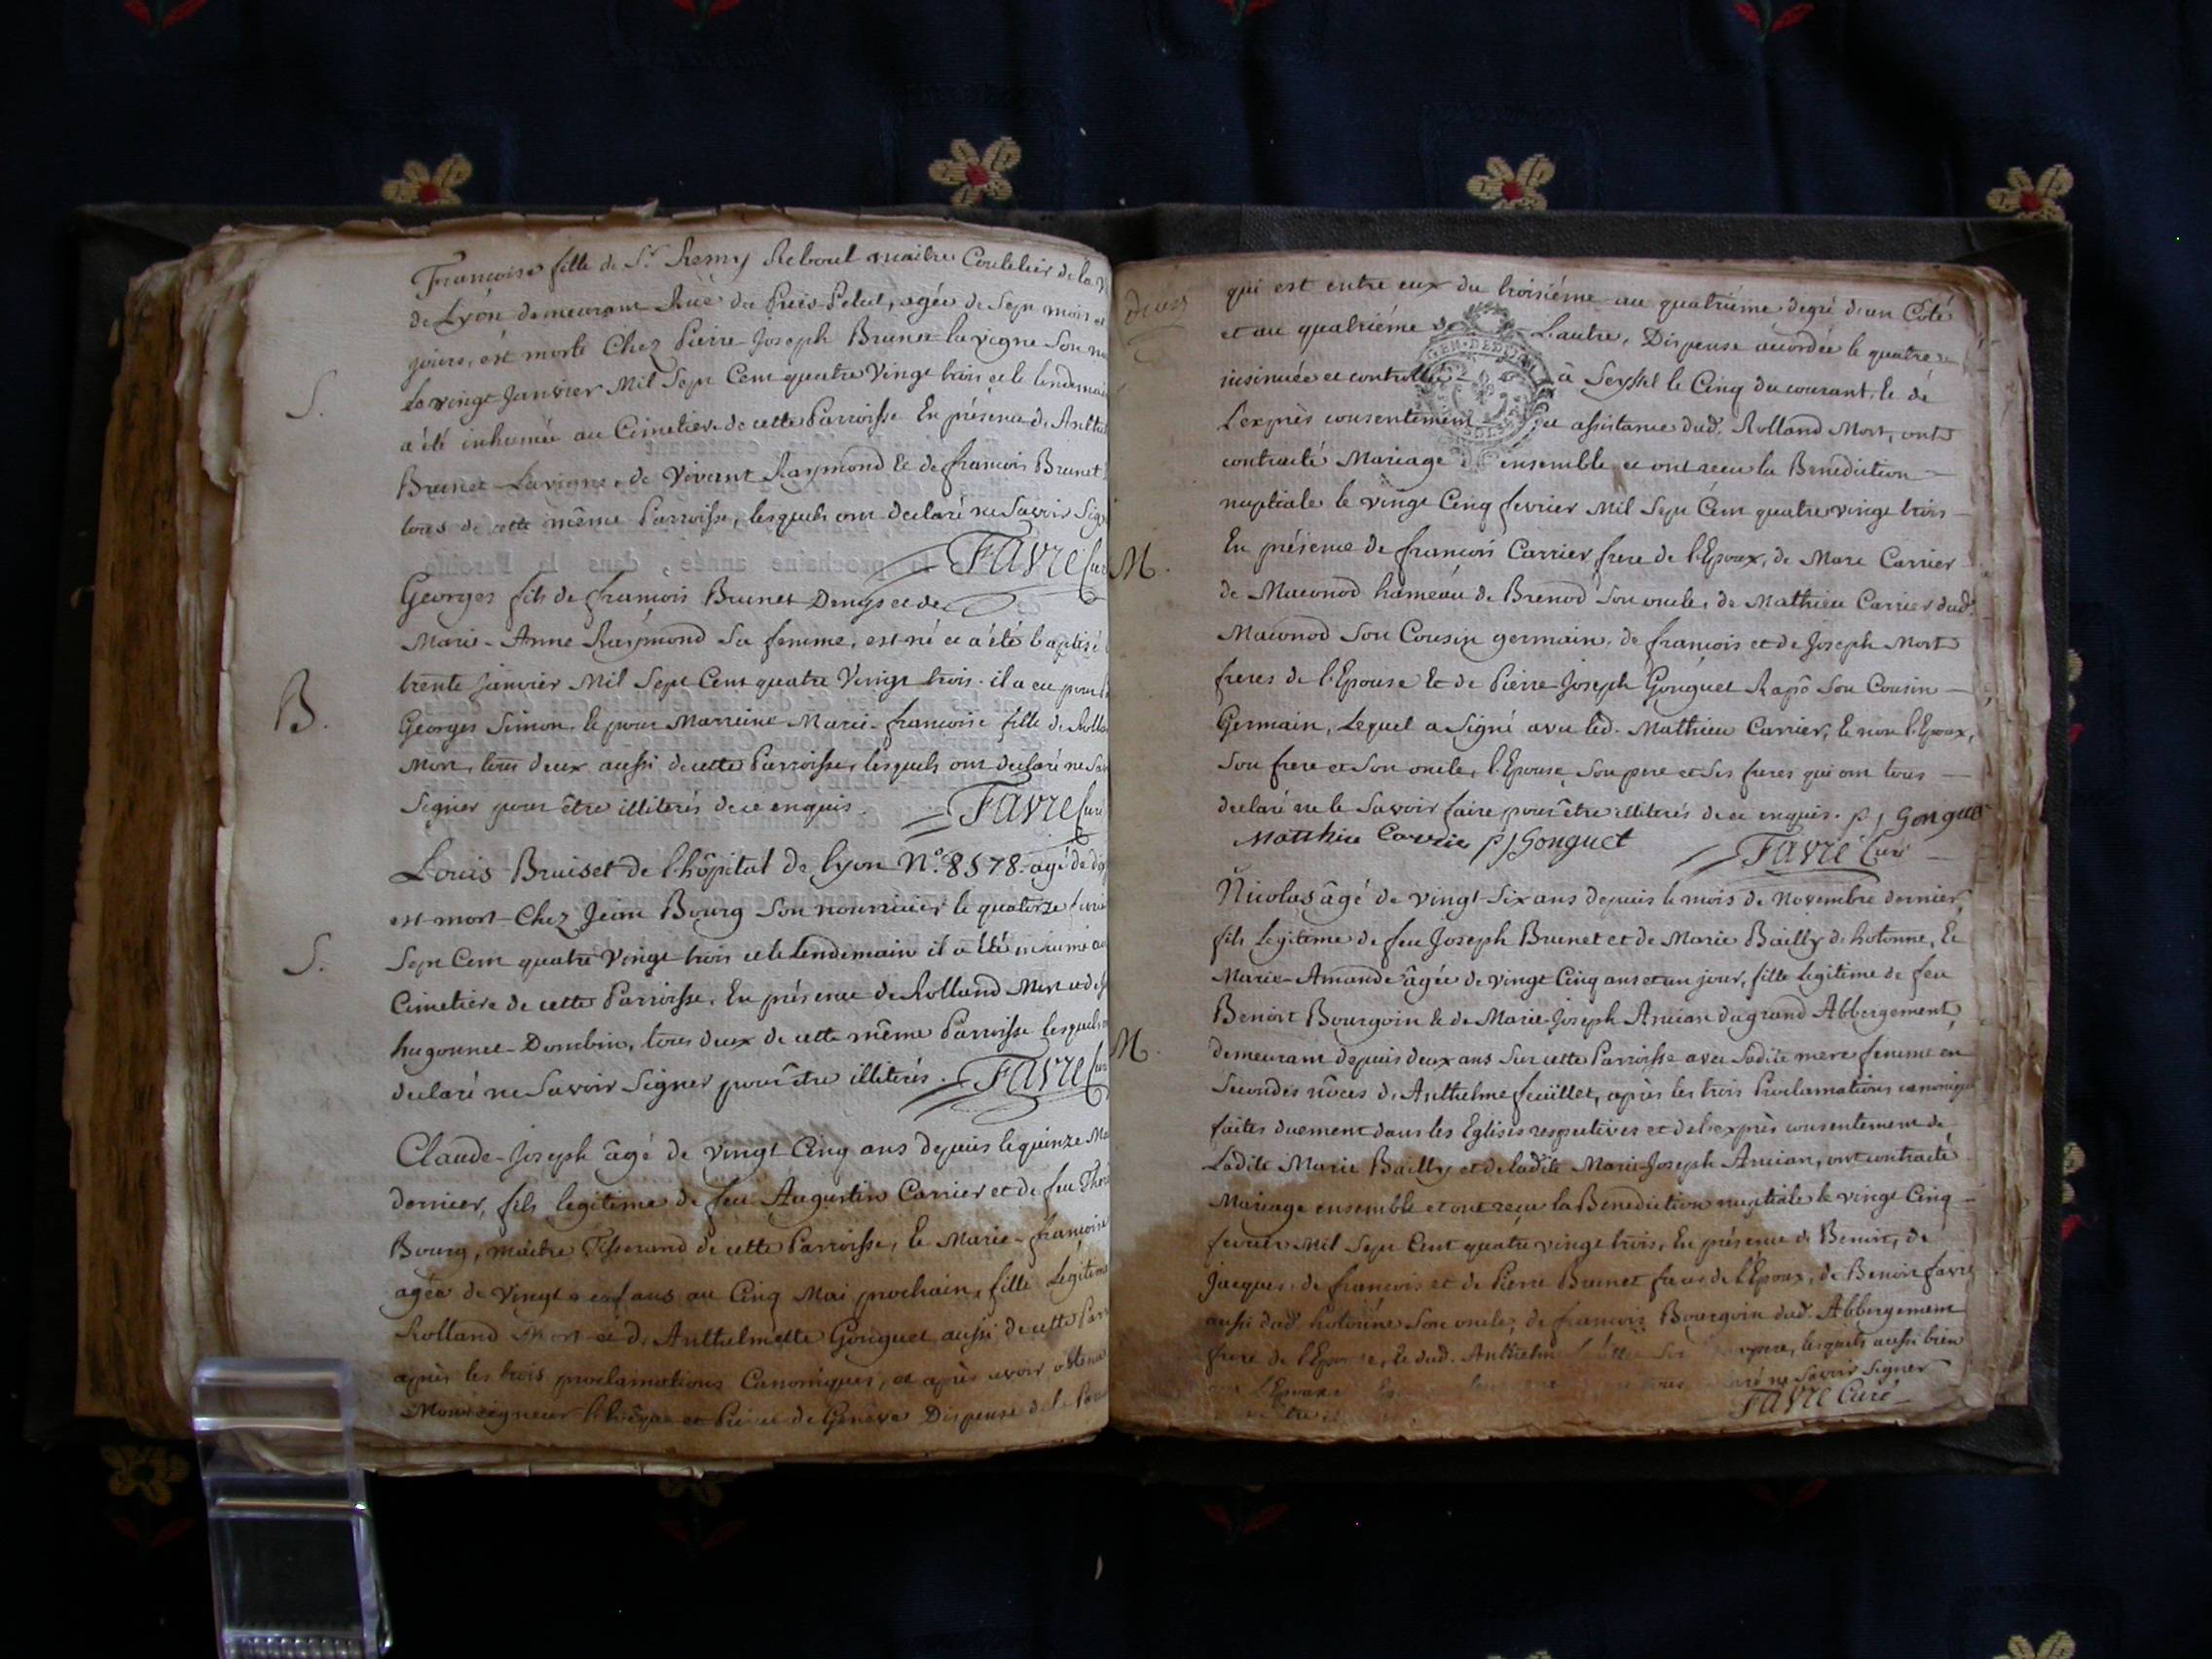 Françoise fille de Sr. Remy Reboul maitre Coutelier de la
de Lyon demeurant Rüe du Puis-Pelut, agée de Sept mois et
jours, est morte Chez Pierre-Joseph Brunet-la vigne Son
S.
Le vingt Janvier Mil Sept Cent quatre Vingt trois et le lendemain
a été inhumée au Cimetiere de cette Parroisse En présence d'
Brunet-Lavigne, de Vivant Raymond & de françois Brunet
tous de cette même Parroisse, lesquels ont declaré ne Savoir
FAVRE Curé
Georges fils de françois Brunet Denys et de
Marie-Anne Raymond Sa femme, est né et a été baptisé
B.
trente Janvier Mil Sept Cent quatre Vingt trois. il a eu pour
Georges Simon, & pour Marreine Marie-francoise fille de
Mort, tous deux aussi de cette Parroisse, lesquels ont declaré ne
Signer pour être illiterés de ce enquis.
FAVRE Curé
Louis Bruiset de l'hôpital de lyon N.° 8578. agé de
est mort Chez Jean Bourg Son nourricier le quatorze
S.
Sept Cent quatre Vingt trois et le Lendemain il a été inhumé au
Cimetiere de cette Parroisse. En présence de Rolland Mort et de
hugonnet-Dombin, tous deux de cette même Parroisse lesquels
declaré ne Savoir Signer pour être illiterés.
FAVRE
Claude-Joseph âgé de vingt Cinq ans depuis le quinze
dernier, fils legitime de feu Augustin Carrier et de feu
Bourg, maitre Tisserand de cette Parroisse, & Marie-françoise
agée de Vingt ans au Cinq Mai prochain, fille Legitime
Rolland Mort et d'Anthelmette Gonguet aussi de cette
après les trois proclamations Canoniques, et après avoir obtenu
Monseigneur l'Evêque et Prince de Genève Dispense de
qui est entre eux du troisiéme au quatriéme degré d'un Côté
et au quatriéme de L'autre, Dispense accordée le quatre
insinuée et controllée à Seyssel le Cinq du courant, & de
L'exprès consentement et assistance dud. Rolland Mort, ont
contracté Mariage ensemble et ont recu la Benediction
nuptiale le vingt Cinq fevrier Mil Sept Cent quatre vingt trois
M.
En présence de francois Carrier frere de l'Epoux, de Marc Carrier
de Macconod hameau de Brenod Son oncle, de Mathieu Carrier dud.
Macconod Son Cousin germain, de francois et de Joseph Mort
freres de l'Epouse & de Pierre-Joseph Gonguet Rapô Son Cousin
Germain, Lequel a Signé avec led. Mathieu Carrier, & non l'Epoux,
Son frere et Son oncle, l'Epouse, Son pere et Ses freres qui ont tous
declaré ne le Savoir faire pour être illiterés de ce enquis. p j Gonguet
Matthieu Carrier p j Gonguet
FAVRE Curé
Nicolas âgé de vingt-Six ans depuis le mois de Novembre dernier,
fils Legitime de feu Joseph Brunet et de Marie Bailly de hotonne, &
Marie-Amande âgée de vingt Cinq ans et un jour, fille legitime de feu
Benoit Bourgoin & de Marie-Joseph Ancian du grand Abbergement,
M.
demeurant depuis deux ans Sur cette Parroisse avec Sadite mere femme en
Secondes nôces d'Anthelme feuillet, après les trois Proclamations canoniques
faites duement dans les Eglises respectives et de l'exprès consentement de
Ladite Marie Bailly et de ladite Marie-Joseph Ancian, ont contracté
Mariage ensemble et ont reçu la Benediction nuptiale le vingt Cinq
fevrier Mil Sept Cent quatre vingt trois, En présence de Benoit, de
Jacques, de francois et de Pierre Brunet freres de l'Epoux, de Benoit favre
aussi dud. hotonne Son oncle, de francois Bourgoin dud. Abbergement
frere de l'Epouse, & dud. Anthelme lesquels aussi bien
l'Epouse ne Savoir Signer
FAVRE Curé